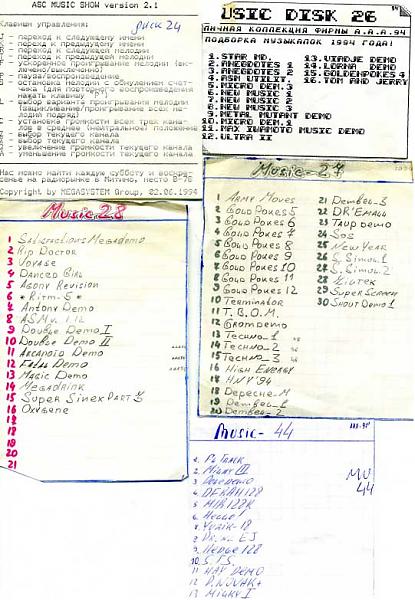 ASC MUSIC SHOW version 2.1
диск 24
Клавиши управления:
- переход к следующему имени
- переход к предыдущему имени
- переход к следующей мелодии
- переход к предыдущей мелодии
- ускоренное проигрывание мелодии (вк-
лючено/выключено)
- пауза/воспроизведение
- остановка мелодии с обнулением счет-
чика (для повторного воспроизведения
нажать клавишу "P")
- выбор варианта проигрывания мелодии
(замыкание/проигрывание всех ме-
лодий подряд)
- установка громкости всех трех кана-
лов в среднее (нейтральное) положение
- выбор текущего канала
- выбор текущего канала
- увеличение громкости текущего канала
- уменьшение громкости текущего канала
Нас можно найти каждую субботу и воскре-
сенье на радиорынке в Митино, место B-76
Copyright by MEGASYSTEM Group, 02.06.1994
USIC DISK 26
ЛИЧНАЯ КОЛЛЕКЦИЯ ФИРМЫ A.A.A.94
ПОДБОРКА МУЗЫКАЛОК 1994 ГОДА!
1.STAR MD.
2.ANEGDOTES 1
3.ANEGDOTES 2
4.ASM UTILIT.
5.MICRO DEM.3
6.NEW MUSIC 1
7.NEW MUSIC 2
8.NEW MUSIC 3
9.METAL MUTANT DEMO
10.MICRO DEM.1
11.MAX IWAMOTO MUSIC DEMO
12.ULTRA II
13.VIRDJE DEMO
14.LORNA DEMO
15.GOLDENPOKES 4
16.TOM AND JERRY
Music-27
1 Army Moves
2 Gold Pokes 5
3 Gold Pokes 6
4 Gold Pokes 7
5 Gold Pokes 8
6 Gold Pokes 9
7 Gold Pokes 10
8 Gold Pokes 11
9 Gold Pokes 12
10 Terminator
11 T.B.O.M.
12 Gromdemo
13 Techno-1
14 Techno-2
15 Techno-3
16 High Energy
17 HNY'94
18 Depeche-M
19 Dembel-1
20 Dembel-2
21 Dembel-3
22 DR'Email
23 Taup Demo
24 SOS
25 New Year
26 S. Simul. 1
27 S. Simul. 2
29 Super Screen
30 Shout Demo 1
Music 28
1 Satisfactions Megademo
2 Rip Doctor
3 Voyage
4 Danced Girl
5 Agony Revision
6 * Ritm-5 *
7 Antony Demo
8 ASM v. 1.12
9 Double Demo I
10 Double Demo II
11 Arcanoid Demo
12 Falls Demo
13 Magic Demo
14 Megadrink
15 Super Sinex Part 3
16 Oxygene
17
18
19
20
21
Music- 44
MU
44
3. Dove Demo
4. DFRAN 128
5. MIR 122K
7. Yurik-18
9. Hedge 128
10. S.T.S.
11. HAY DEMO
12. D. NOVAK+
13 Migky I